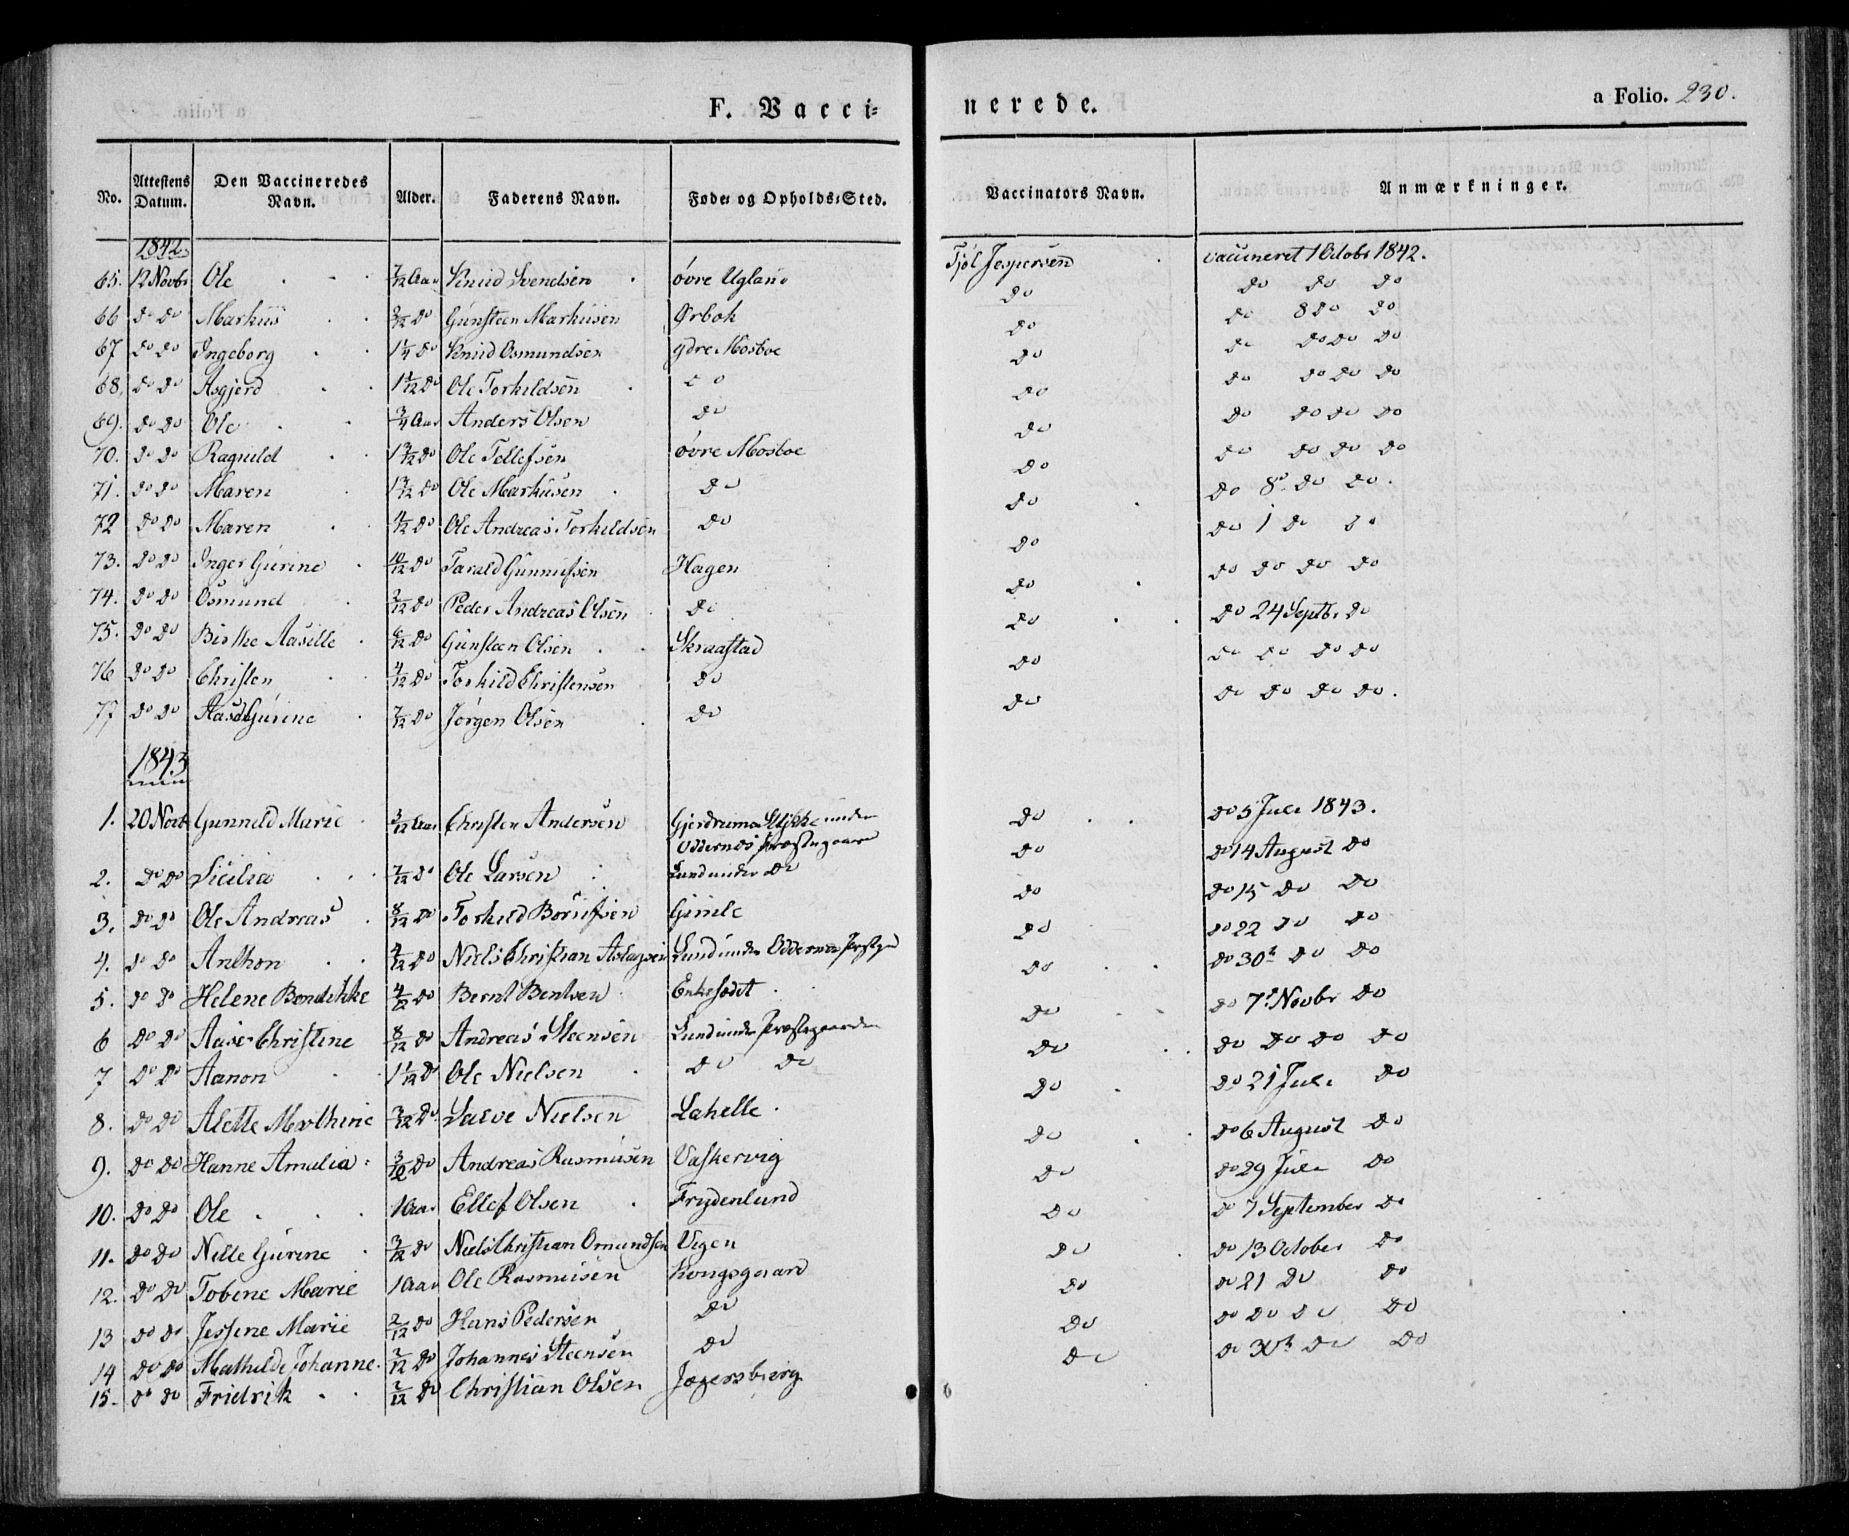 F. Vaccinerede. a Folio. 230.
No. | Attestens Datum. | Den Vaccineredes Navn. | Alder. | Faderens Navn. | Føde- og Opholds-Sted. | Vaccinators Navn. | Anmærkninger.
1842.
65. | 12 Novbr | Ole | 7/12 Aar | Knud Svendsen | øvre Ugland | Tjøl Jespersen | vaccineret 1 Octobr 1842.
66 | do do | Markus | 3/12 do | Gunsteen Markusen | Ørbok | do | do do do
67 | do do | Ingeborg | 1 1/4 do | Knud Osmundsen | ydre Mosboe | do | do 8 do do
68. | do do | Asgjerd | 1 1/12 do | Ole Torkildsen | do | do | do do do do
69. | do do | Ole | 3/4 Aar | Anders Olsen | do | do | do do do do
70. | do do | Ragnild | 1 3/12 do | Ole Tellefsen | øvre Mosboe | do | do do do do
71. | do do | Maren | 1 3/12 do | Ole Markusen | do | do | do do do do
72 | do do | Maren | 4/12 do | Ole Andreas Torkildsen | do | do | do 8de do do.
73. | do do | Inger Gurine | 10/12 do | Tarald Gunnufsen | Hagen | do | do 1 do do
74. | do do | Osmund | 2/12 do | Peder Andreas Olsen | do | do | do do do do
75. | do do | Birthe Aasille | 6/12 do | Gunsteen Olsen | Skraastad | do | do 24 Septbr do
76 | do do | Christen | 4/12 do | Torkild Christensen | do | do | do do do do
77 | do do | Aase Gurine | 7/12 do | Jørgen Olsen | do | do | do do do do.
1843
1. | 20 Novb | Gunnild Marie | 3/12 Aar | Christen Andersen | Gjerdrums Stykke under
Oddernes Præstegaard | do | do 5 Juli 1843.
2. | do do | Sicilia | 7/12 do | Ole Larsen | Lund under do | do | do 14 August do
3. | do do | Ole Andreas | 8/12 do | Torkild Borufsen | Gimle | do | do 15 do do
4. | do do | Anthon | 4/12 do | Niels Christian Aslagsen | Lund under Oddernes Prstgd | do | do 22 do do
5. | do do | Helene Bendikke | 4/12 do | Bernt Bentsen | Enkesædet | do | do 30te do do
6 | do do | Aase Christine | 8/12 do | Andreas Steensen | Lund under Præstegaarden | do | do 7de Novbr do
7 | do do | Aanon | 1 1/12 do | Ole Nielsen | do do | do | do do do do
8. | do do | Alette Mathine | 3/12 do | Salve Nielsen | Lahelle | do | do 21 Juli do
9. | do do | Hanne Amalia | 3/12 do | Andreas Rasmusen | Vaskervig | do | do 6 August do
10. | do do | Ole | 1 Aar | Ellef Olsen | Frydenlund | do | do 29 Juli do
11. | do do | Nille Gurine | 3/12 do | Niels Christian Omundsen | Vigen | do | do 7 September do
12. | do do | Tobine Marie | 1 Aar | Ole Rasmusen | Kongsgaard | do | do 13 October do
13 | do do | Jessine Marie | 2/12 do | Hans Pedersen | do | do | do 21 do do
14 | do do | Mathilde Johanne. | 7/12 do | Johannes Steensen | do | do | do do do do
15. | do do | Fridrik | 7/12 do | Christian Olsen | Jægersberg | do | do 30te do do